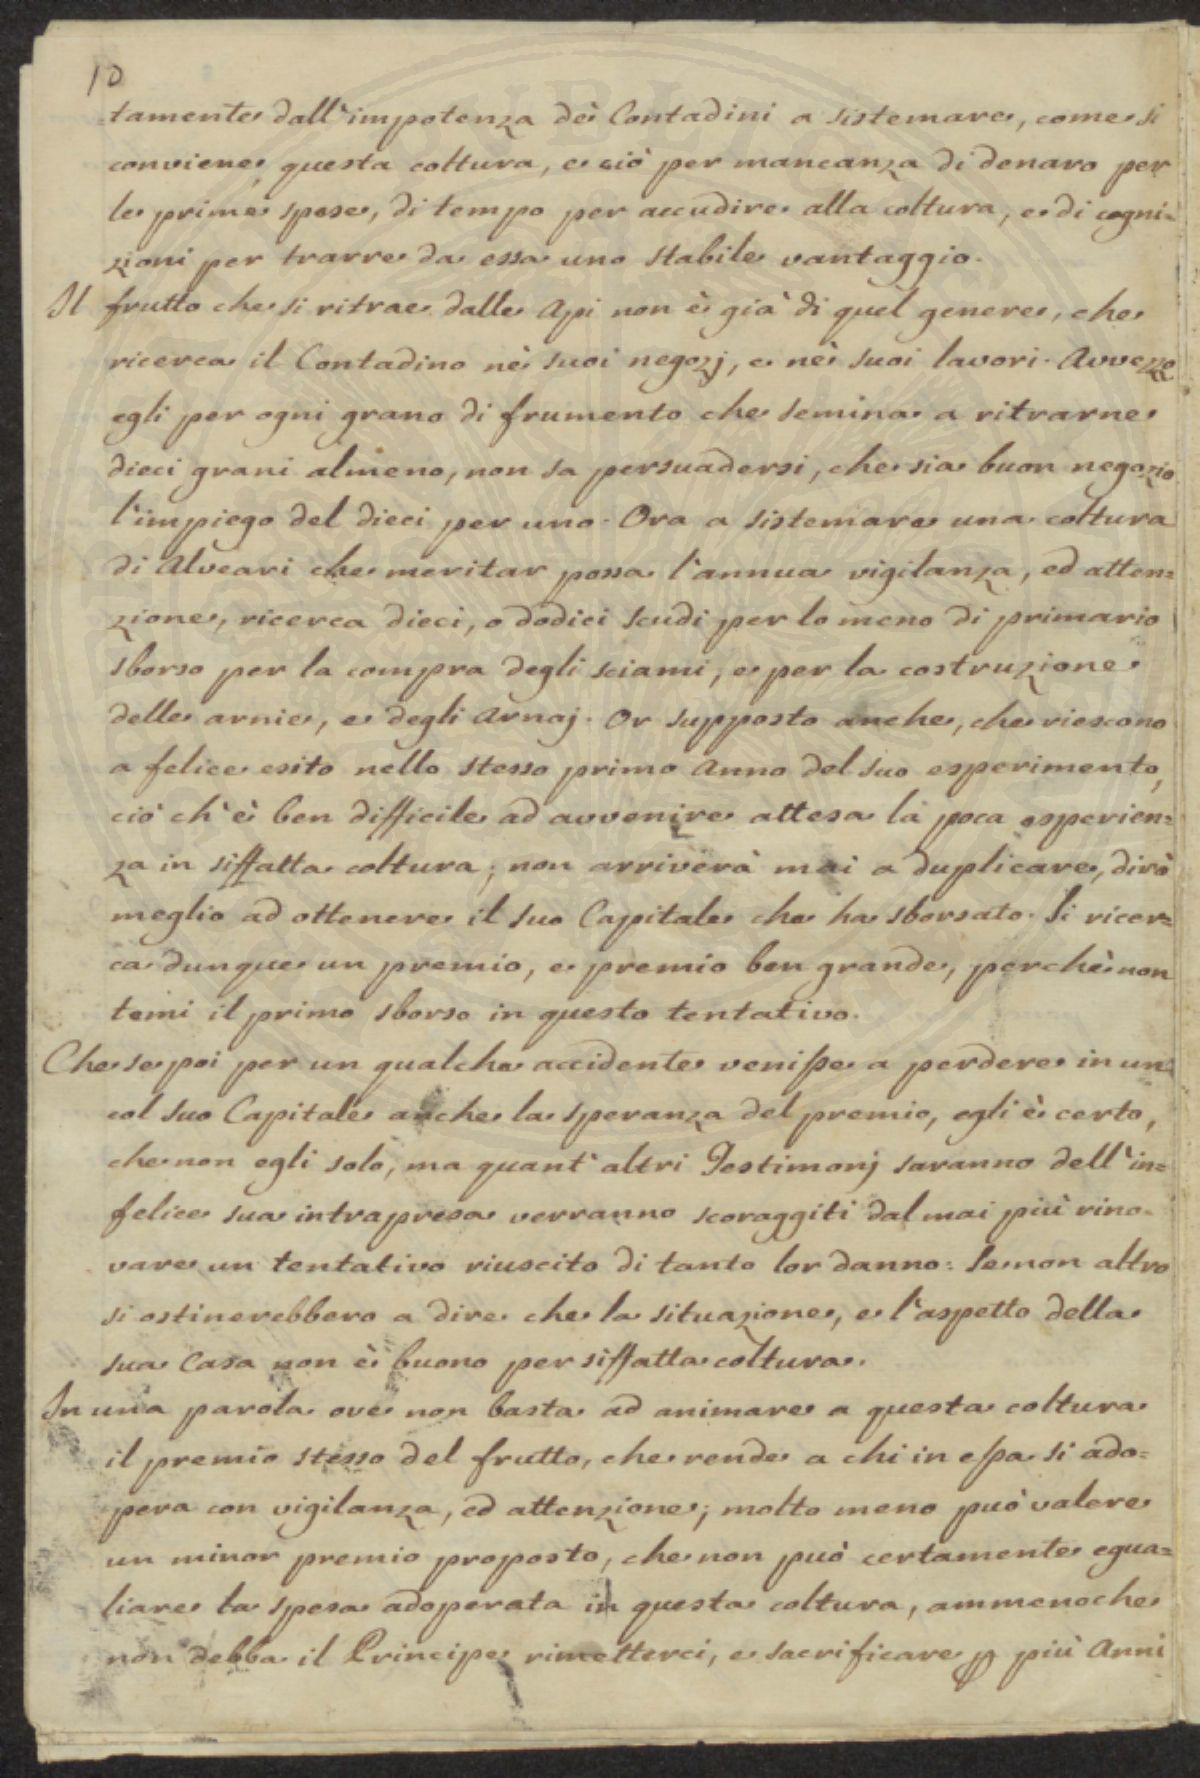 10
tamente dall'impotenza dè Contadini a sistemare, come si
conviene, questa coltura, e ciò per mancanza di denaro per
le prime spese, di tempo per accudire alla coltura, e di cogni=
zioni per trarre da essa uno stabile vantaggio.
Il frutto che si ritrae dalle Api non è già di quel genere, che
ricerca il Contadino nè suoi negozj, e nè suoi lavori. Avvezzo
egli per ogni grano di frumento che semina a ritrarne
dieci grani almeno, non sa persuadersi, che sia buon negozio
l'impiego del dieci per uno. Ora a sistemare una coltura
di Alveari che meritar possa l'annua vigilanza, ed atten=
zione, ricerca dieci, o dodici scudi per lo meno di primario
sborso per la compra degli sciami, e per la costruzione
delle arnie, e degli Arnaj. Or supposto anche, che riescono
a felice esito nello stesso primo Anno del suo esperimento,
ciò ch'è ben difficile ad avvenire attesa la poca esperien=
za in siffatta coltura; non arriverà mai a duplicare, dirò
meglio ad ottenere il suo Capitale che ha sborsato. Si ricer=
ca dunque un premio, e premio ben grande, perchè non
temi il primo sborso in questo tentativo.
Che se poi per un qualche accidente venisse a perdere in un
col suo Capitale anche la speranza del premio, egli è certo,
che non egli solo, ma quant'altri Testimonj saranno dell'in=
felice sua intrapresa verranno scoraggiti dal mai più rino=
vare un tentativo riuscito di tanto lor danno: se non altro
si ostinerebbero a dire che la situazione, e l'aspetto della
sua Casa non è buono per siffatta coltura.
In una parola ove non basta ad animare a questa coltura
il premio stesso del frutto, che rende a chi in essa si ado=
pera con vigilanza, ed attenzione; molto meno può valere
un minor premio proposto, che non può certamente egua=
liare la spesa adoperata in questa coltura, ammenoche
non debba il Principe rimetterci, e sacrificare p più Anni